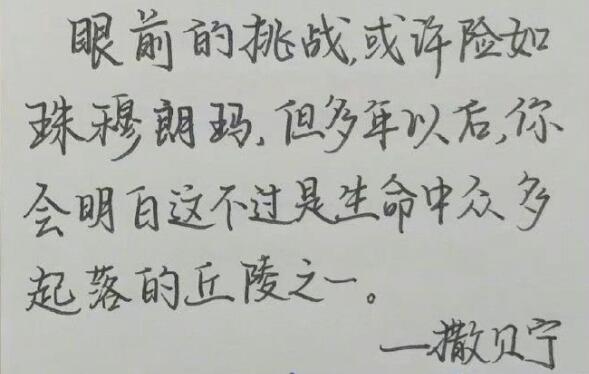 眼前的挑战,或许险如
珠穆朗玛,但多年以后,你
会明白这不过是生命中众多
起落的丘陵之一。
—撒贝宁